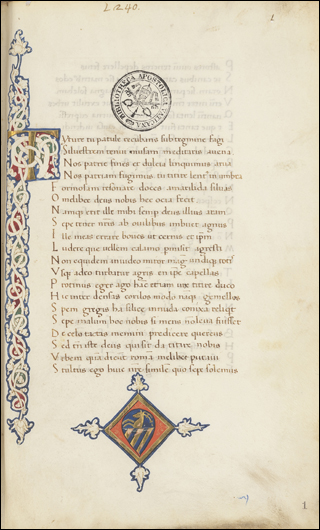 L 240.
1
BIBLIOTHECA APOSTOLICA VATICANA
Tyture tu patule recubans subtegmine fagi
Siluestrem tenui musam meditaris auena
Nos patrie fines et dulcia linquimus arua
Nos patriam fugimus tu titire lent' in umbra
Formosam resonare doces amarillida siluas
O melibee deus nobis hec ocia fecit
Namq; erit ille mihi semp deus illius aram
Sepe tener nris ab ouilibus imbuet agnus
Ille meas errare boues ut cernis et ipm
Ludere que uellem calamo pmisit agresti
Non equidem inuideo miror mag' undiq; totis
Vsq; adeo turbatur agris en ipe capellas
Protinus eger ago hac etiam uix titire duco
Hic inter densas corilos modo naq; gemellos
Spem gregis ha silice innuda conixa reliqt
Sepe malum hoc nobis si mens n leua fuisset
De celo tactas memini predicere quercus
Sed tn iste deus qui sit da titire nobis
Vrbem qua dicut roma melibee putaui
Stultus ego huic nre simile quo sepe solemus
1